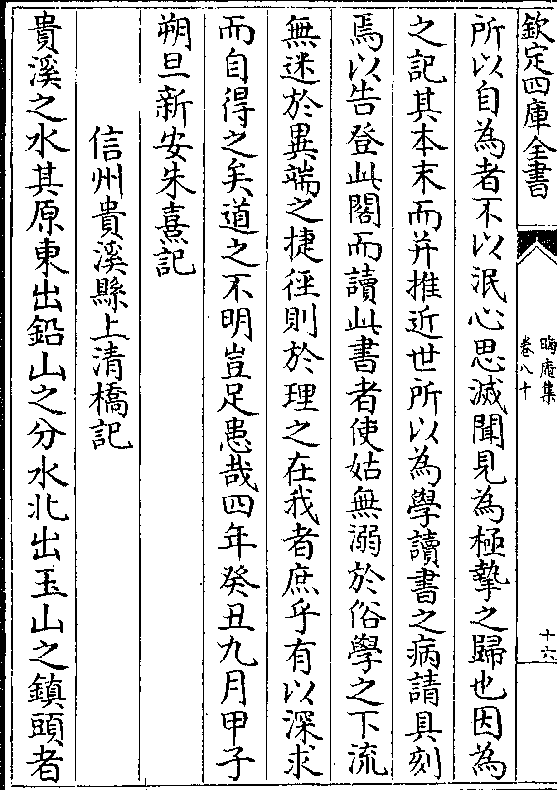 欽定四庫全書
晦庵集
卷八十
十六
所以自為者不以泯心思滅聞見為極摯之歸也因為
之記其本末而并推近世所以為學讀書之病請具刻
焉以告登此閣而讀此書者使姑無溺於俗學之下流
無迷於異端之捷徑則於理之在我者庶乎有以深求
而自得之矣道之不明豈足患哉四年癸丑九月甲子
朔旦新安朱熹記
信州貴溪縣上清橋記
貴溪之水其原東出鉛山之分水北出玉山之鎮頭者